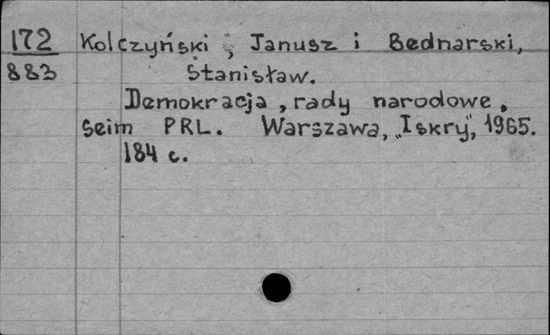 172 Kolczyński, Janusz i Bednarski,
883 Stanisław.
Demokracja, rady narodowe,
seim PRL. Warszawa, „Iskry", 1965.
184 c.